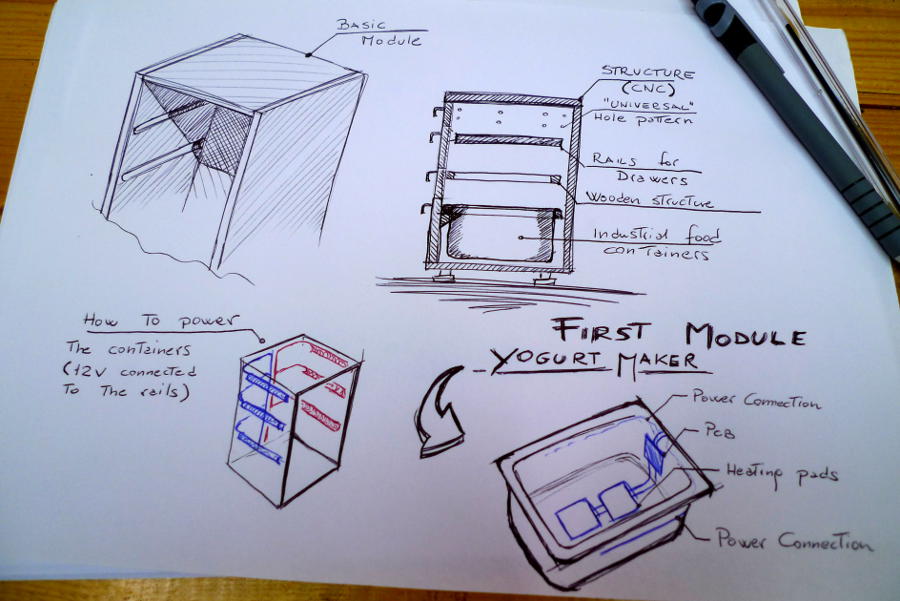 Basic
Module
STRUCTURE
(CNC)
"UNIVERSAL"
Hole pattern
Rails for
Drawers
Wooden structure
Industrial food
containers
How To power
The containers
(12v connected
To The rails)
FIRST MODULE
YOGURT MAKER
Power Connection
PCB
Heating pads
Power Connection